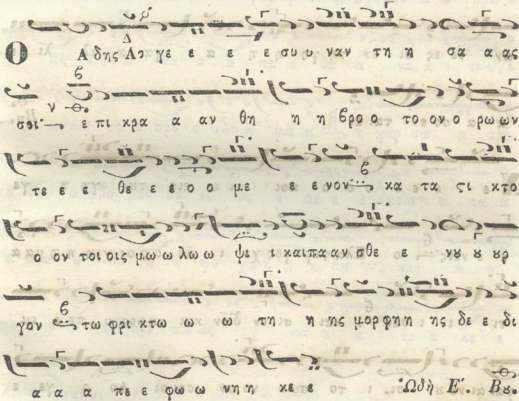 Ο Αδης Λο γε ε ε ε συ υ ναν τη η σα α ας
σοι ε πι κρα α αν θη η η βρο ο το ον ο ρω ων
τε ε ε θε ε ε ο ο με ε ε νον κα τα ςι κτο
ο ον τοι οις μω ω λω ω ψι ι και πα αν σθε ε νου ου ουρ
γον τω φρι κτω ω ω τη η ης μορφη η ης δε ε δι
α α α πε ε φω ω νη η κε ε
Ὠδὴ Ε΄. Βου.